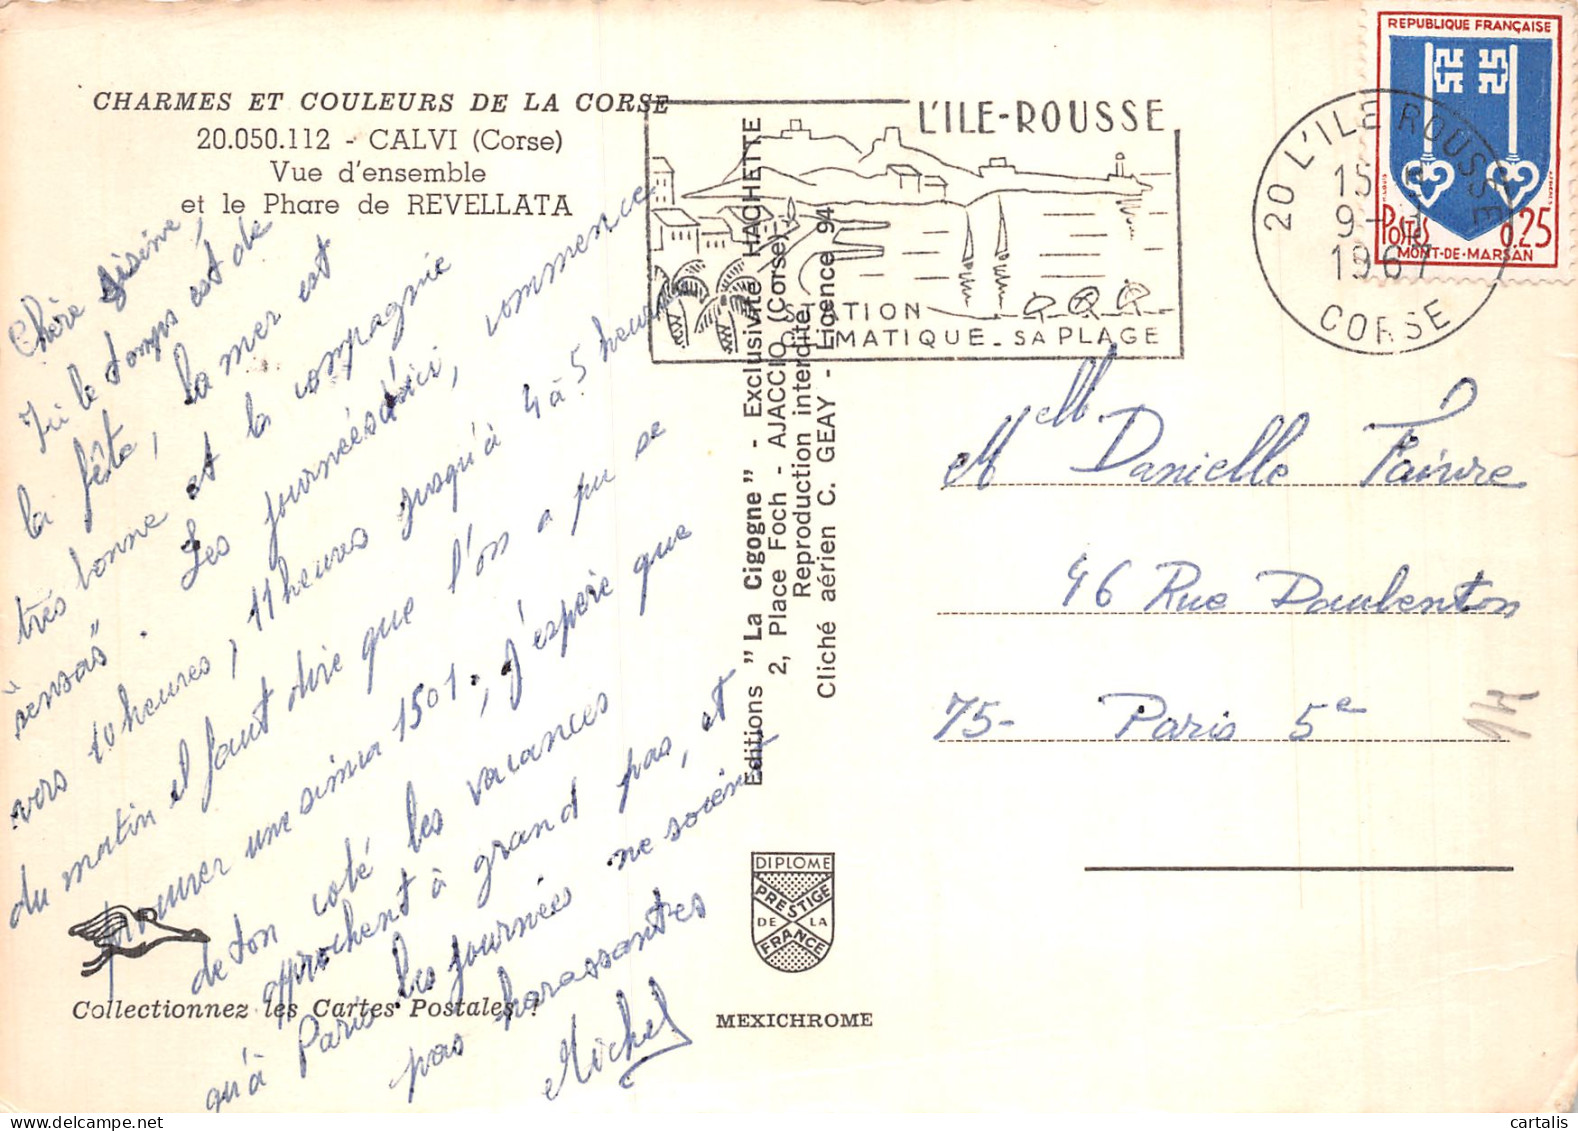 CHARMES ET COULEURS DE LA CORSE
20.050.112 - CALVI (Corse)
Vue d'ensemble
et le Phare de REVELLATA
Chère
Ici le temps est de
la fête, la mer est
très bonne et la compagnie
"sensas". Les journées d'ici, commence
vers 10 heures, 11 heures jusqu'à 4 à 5 heures
du matin il faut dire que l'on a pu se
trouver une simca 1501, j'espère que
de ton coté les vacances
approchent à grand pas, et
qu'à Paris les journées ne soient
pas harassantes
Michel
Collectionnez les Cartes Postales !
Editions "La Cigogne" - Exclusivité HACHETTE
2, Place Foch - AJACCIO (Corse)
Reproduction interdite
Cliché aérien C. GEAY - Licence 94
DIPLOME
PRESTIGE
DE LA
FRANCE
MEXICHROME
L'ILE-ROUSSE
STATION
MATIQUE _ SA PLAGE
20 L'ILE ROUSSE
15
9 - 3
1967
CORSE
REPUBLIQUE FRANÇAISE
POSTES 0,25
MONT-DE-MARSAN
Melle Danielle Faivre
46 Rue Daubenton
75- Paris 5e
cartalis